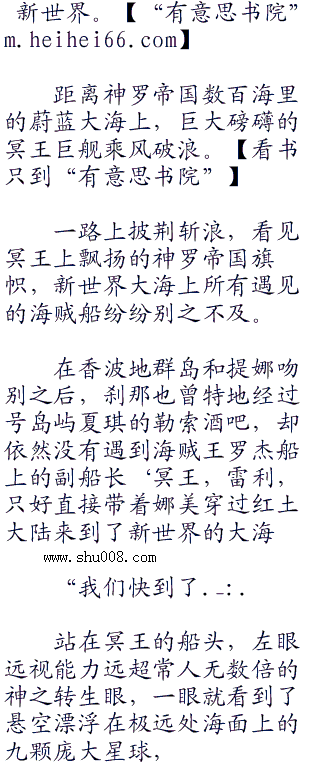 新世界。【“有意思书院”
m.heihei66.com】
距离神罗帝国数百海里
的蔚蓝大海上，巨大磅礴的
冥王巨舰乘风破浪。【看书
只到“有意思书院”】
一路上披荆斩浪，看见
冥王上飘扬的神罗帝国旗
帜，新世界大海上所有遇见
的海贼船纷纷别之不及。
在香波地群岛和提娜吻
别之后，刹那也曾特地经过
号岛屿夏琪的勒索酒吧，却
依然没有遇到海贼王罗杰船
上的副船长‘冥王，雷利，
只好直接带着娜美穿过红土
大陆来到了新世界的大海
www.shu008.com
“我们快到了._:.
站在冥王的船头，左眼
远视能力远超常人无数倍的
神之转生眼，一眼就看到了
悬空漂浮在极远处海面上的
九颗庞大星球，